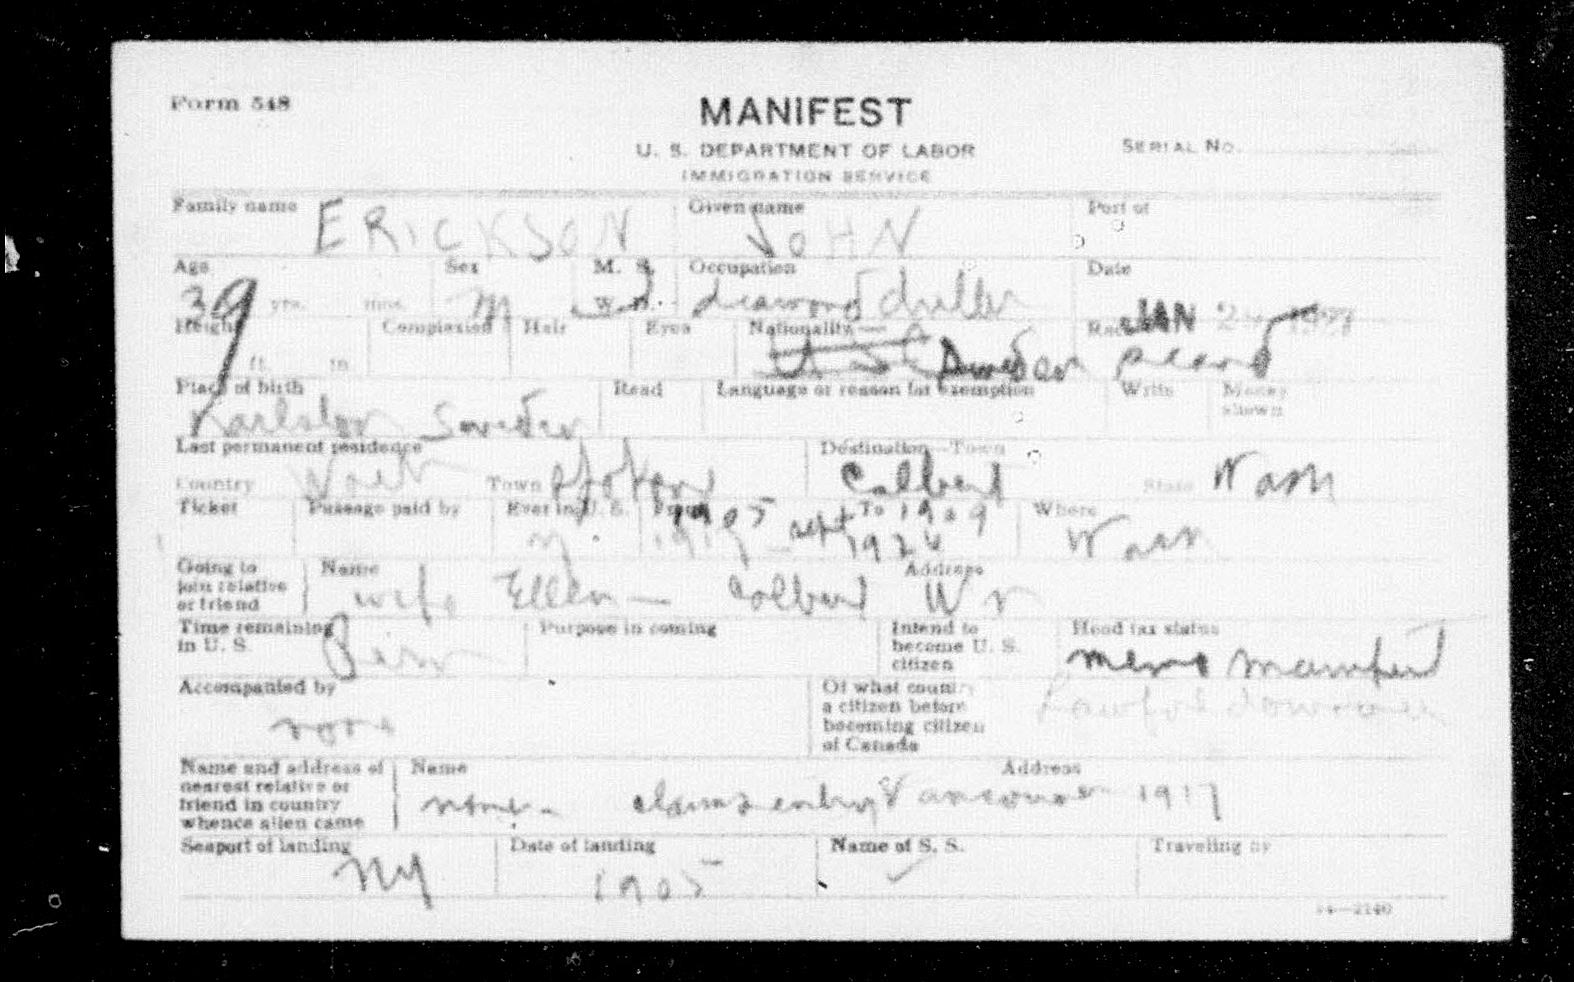 Form 548
MANIFEST
U. S. DEPARTMENT OF LABOR
IMMIGRATION SERVICE
SERIAL No.
Family name ERICKSON Given name JOHN Port of
Age 39 yrs. mos. Sex M M. S. W. D. Occupation diamond driller Date JAN
Height ft. in. Complexion Hair Eyes Nationality U S Sweden Race Scand
Place of birth Sweden Read Language or reason for exemption Write Money shown
Last permanent residence Country Town Spokane Destination—Town Colbert State Wash
Ticket Passage paid by Ever in U. S. y From 1905 To 1909 Where Wash
1919 - Sept 1926
Going to join relative or friend Name wife Ellen — Address Colbert Wn
Time remaining in U. S. Perm Purpose in coming Intend to become U. S. citizen Head tax status memo manifest
Accompanied by none Of what country a citizen before becoming citizen of Canada
Name and address of nearest relative or friend in country whence alien came Name none - Address claims entry Vancouver 1917
Seaport of landing NY Date of landing 1905 Name of S. S. Traveling by
14—2140